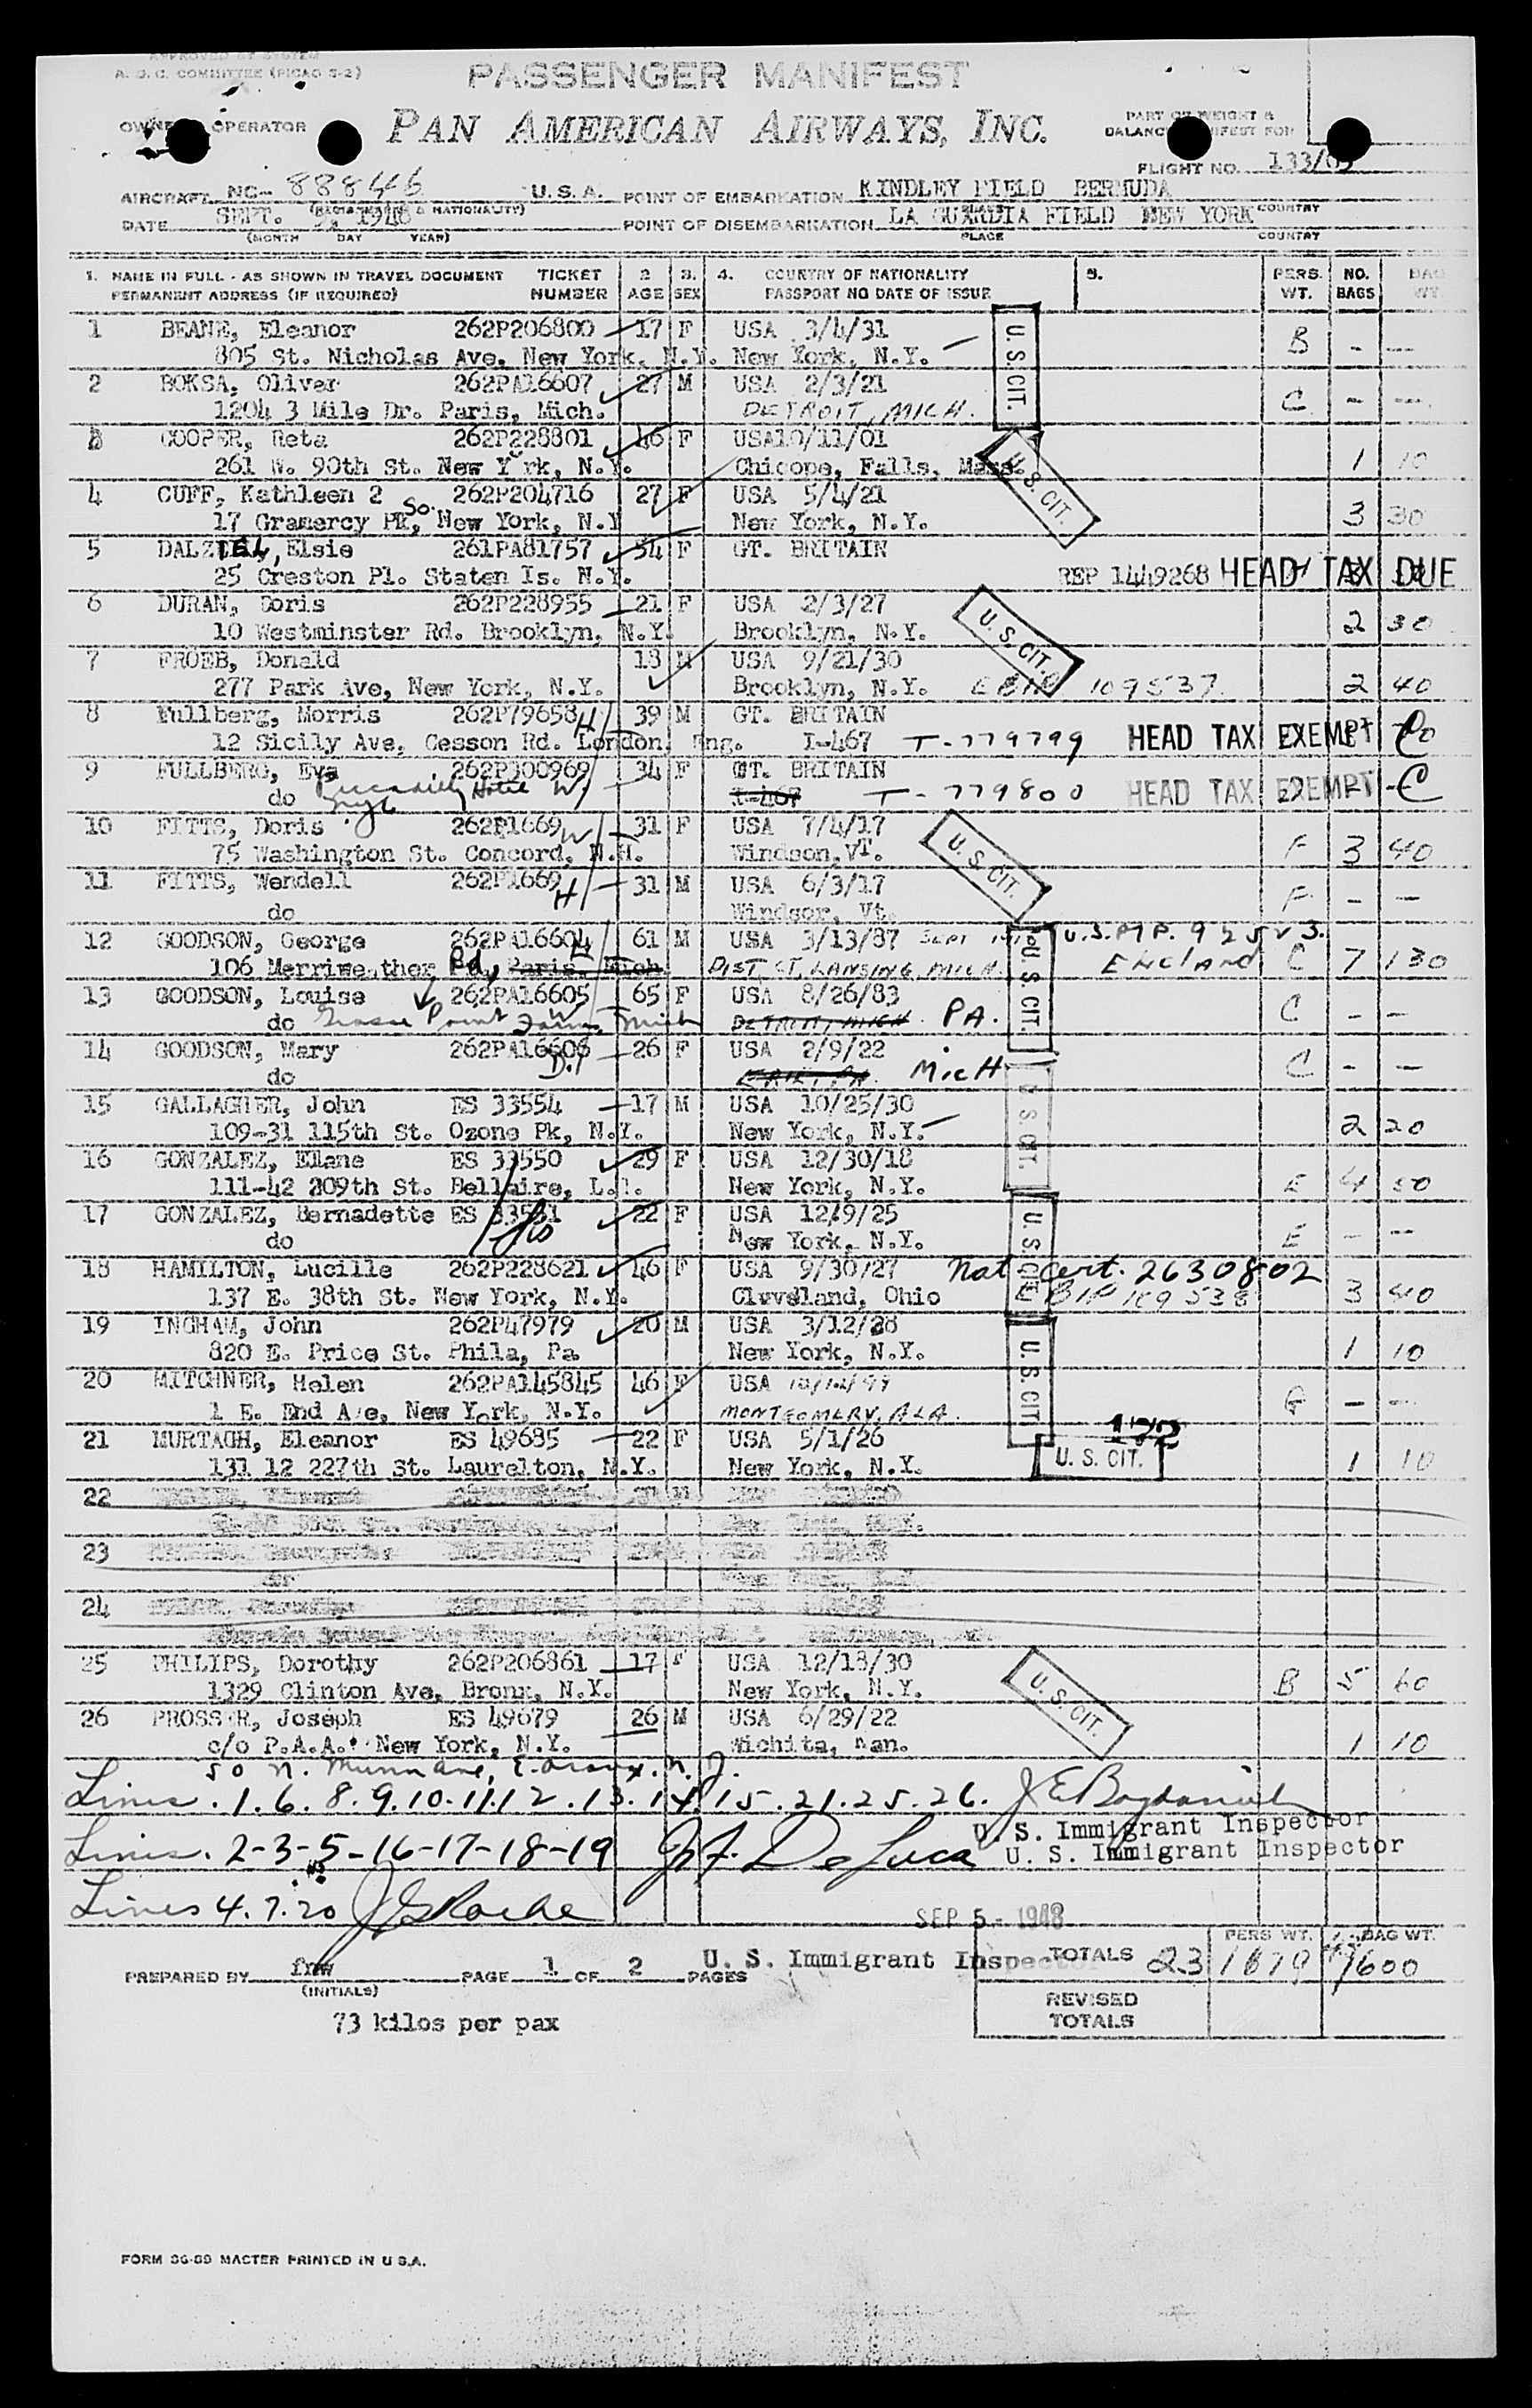 APPROVED BY SYSTEM
A. O. C. COMMITTEE (PICAO S-2)
PASSENGER MANIFEST
OPERATOR PAN AMERICAN AIRWAYS, INC.
PART OF WEIGHT &
FLIGHT NO. 133/05
AIRCRAFT NC- 88846 U.S.A. POINT OF EMBARKATION KINDLEY FIELD BERMUDA
DATE SEPT. 1948 POINT OF DISEMBARKATION LA GUARDIA FIELD NEW YORK COUNTRY
(MONTH DAY YEAR) PLACE COUNTRY
1. NAME IN FULL - AS SHOWN IN TRAVEL DOCUMENT TICKET 2 3. 4. COUNTRY OF NATIONALITY 5. PERS. NO. BAG
PERMANENT ADDRESS (IF REQUIRED) NUMBER AGE SEX PASSPORT NO DATE OF ISSUE WT. BAGS WT.
1 BEANE, Eleanor 262P206800 17 F USA 3/4/31 U.S.CIT.
805 St. Nicholas Ave. New York, N.Y. New York, N.Y. B - --
2 BOKSA, Oliver 262PA16607 27 M USA 2/3/21
1204 3 Mile Dr. Paris, Mich. DETROIT, MICH. C - --
3 COOPER, Reta 262P228801 46 F USA10/11/01 U.S. CIT.
261 W. 90th St. New York, N.Y. Chicope, Falls, Mass. 1 10
4 CUFF, Kathleen 2 262P204716 27 F USA 5/4/21
17 Gramercy PK, So. New York, N.Y New York, N.Y. 3 30
5 DALZIEL, Elsie 261PA81757 54 F GT. BRITAIN
25 Creston Pl. Staten Is. N.Y. REP 1449268 HEAD TAX DUE
6 DURAN, Doris 262P228955 21 F USA 2/3/27 U.S. CIT.
10 Westminster Rd. Brooklyn, N.Y. Brooklyn, N.Y. 2 30
7 FROEB, Donald 18 M USA 9/21/30
277 Park Ave, New York, N.Y. Brooklyn, N.Y. 109537 2 40
8 Fullberg, Morris 262P79658 H 39 M GT. BRITAIN
12 Sicily Ave, Cesson Rd. London, Eng. I-467 T-779799 HEAD TAX EXEMPT
9 FULLBERG, Eva 262P300969 W 34 F GT. BRITAIN
do Piccadilly Hotel I-467 T-779800 HEAD TAX EXEMPT C
10 FITTS, Doris 262P1669 W 31 F USA 7/4/17 U.S. CIT.
75 Washington St. Concord, N.H. Windson, VT. F 3 40
11 FITTS, Wendell 262P1669 H 31 M USA 6/3/17
do Windsor, Vt. F - -
12 GOODSON, George 262PA16604 61 M USA 3/13/87 U.S. CIT.
106 Merriweather Rd, Paris, Mich. DIST. CT. LANSING, MICH ENGLAND C 7 130
13 GOODSON, Louise 262PA16605 65 F USA 8/26/83
do Grosse Point Farms, Mich DETROIT, MICH PA. C - -
14 GOODSON, Mary 262PA16606 D. 26 F USA 2/9/22
do ERIE, PA. MicH C - -
15 GALLAGHER, John ES 33554 17 M USA 10/25/30 U.S. CIT.
109-31 115th St. Ozone Pk, N.Y. New York, N.Y. 2 20
16 GONZALEZ, Elane ES 33550 29 F USA 12/30/18
111-42 209th St. Bellaire, L.I. New York, N.Y. E 4 50
17 GONZALEZ, Bernadette ES 33551 22 F USA 12/9/25 U.S. CIT.
do New York, N.Y. E - --
18 HAMILTON, Lucille 262P228621 46 F USA 9/30/27 Nat. Cert. 2630802
137 E. 38th St. New York, N.Y. Cleveland, Ohio 109538 3 40
19 INGHAM, John 262P47979 20 M USA 3/12/28 U.S.CIT.
820 E. Price St. Phila, Pa New York, N.Y. 1 10
20 MITCHNER, Helen 262PA145845 46 F USA
1 E. End Ave, New York, N.Y. MONTGOMERY, ALA. G - --
21 MURTAGH, Eleanor ES 49685 22 F USA 5/1/26 U. S. CIT.
131 12 227th St. Laurelton, N.Y. New York, N.Y. 1 10
22
23
24
25 PHILIPS, Dorothy 262P206861 17 F USA 12/18/30 U.S. CIT.
1329 Clinton Ave, Bronx, N.Y. New York, N.Y. B 5 60
26 PROSSER, Joseph ES 49679 26 M USA 6/29/22
c/o P.A.A. New York, N.Y. Wichita, Kan. 1 10
50 N. Munn Ave, E. Orange. N. J.
Lines. 1. 6. 8. 9. 10. 11. 12. 13. 14. 15. 21. 25. 26.
U. S. Immigrant Inspector
Lines. 2-3-5-16-17-18-19 De Luca U. S. Immigrant Inspector
Lines 4. 7. 20 J G Roche
SEP 5 - 1948
PERS WT. BAG WT.
PREPARED BY frw PAGE 1 OF 2 PAGES U. S. Immigrant Inspector TOTALS 23 1679 600
(INITIALS)
REVISED
TOTALS
73 kilos per pax
FORM 36-39 MASTER PRINTED IN U S.A.